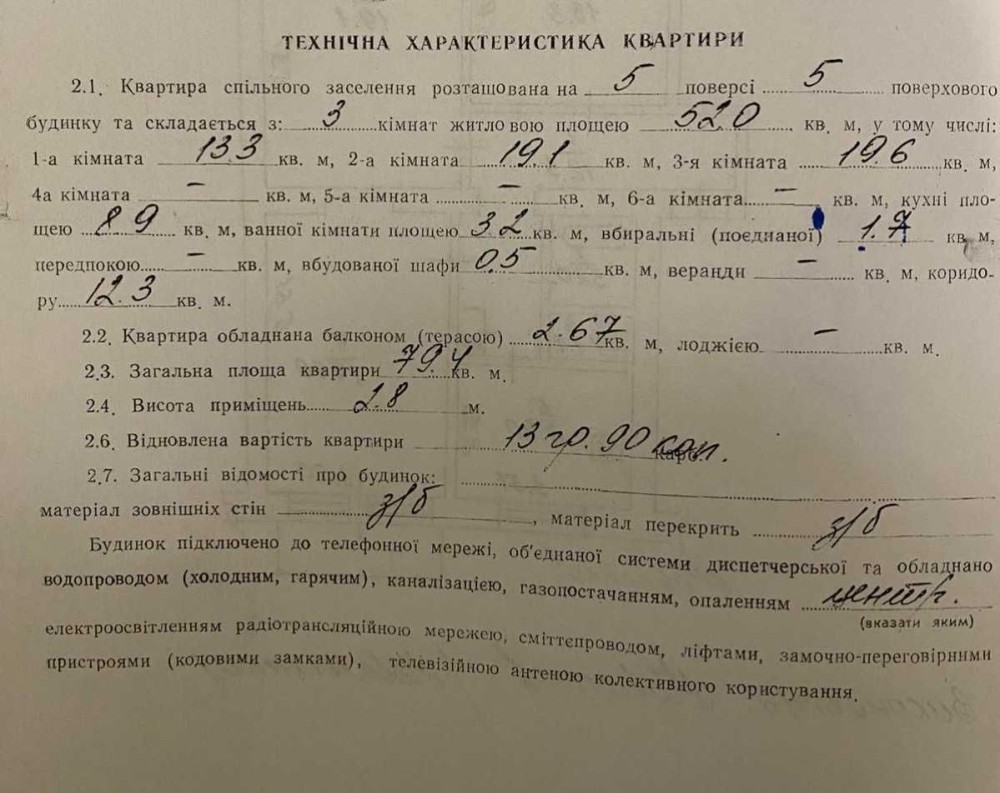 ТЕХНІЧНА ХАРАКТЕРИСТИКА КВАРТИРИ
2.1. Квартира спільного заселення розташована на 5 поверсі 5 поверхового
будинку та складається з: 3 кімнат житловою площею 52.0 кв. м, у тому числі:
1-а кімната 13.3 кв. м, 2-а кімната 19.1 кв. м, 3-я кімната 19.6 кв. м,
4а кімната – кв. м, 5-а кімната – кв. м, 6-а кімната – кв. м, кухні пло-
щею 8.9 кв. м, ванної кімнати площею 3.2 кв. м, вбиральні (поєднаної) 1.7 кв. м,
передпокою – кв. м, вбудованої шафи 0.5 кв. м, веранди – кв. м, коридо-
ру 12.3 кв. м.
2.2. Квартира обладнана балконом (терасою) 2.67 кв. м, лоджією – кв. м.
2.3. Загальна площа квартири 79.4 кв. м.
2.4. Висота приміщень 2.8 м.
2.6. Відновлена вартість квартири 13 гр. 90 коп.
2.7. Загальні відомості про будинок:
матеріал зовнішніх стін з/б, матеріал перекрить з/б
Будинок підключено до телефонної мережі, об'єднаної системи диспетчерської та обладнано
водопроводом (холодним, гарячим), каналізацією, газопостачанням, опаленням центр.
(вказати яким)
електроосвітленням радіотрансляційною мережею, сміттєпроводом, ліфтами, замочно-переговірними
пристроями (кодовими замками), телевізійною антеною колективного користування.